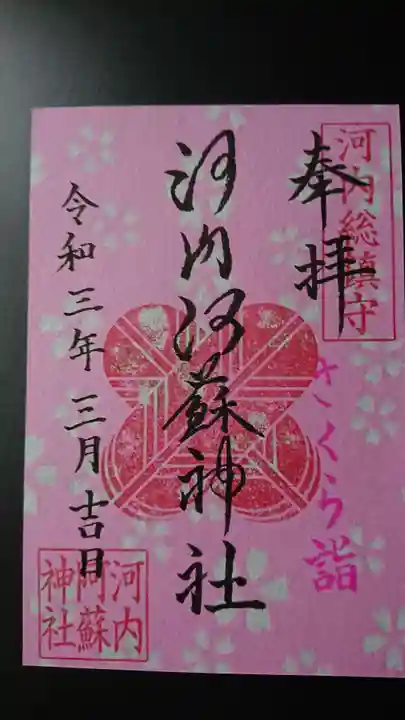 河内総鎮守
奉拝
さくら詣
河内阿蘇神社
令和三年三月吉日
河内
阿蘇
神社